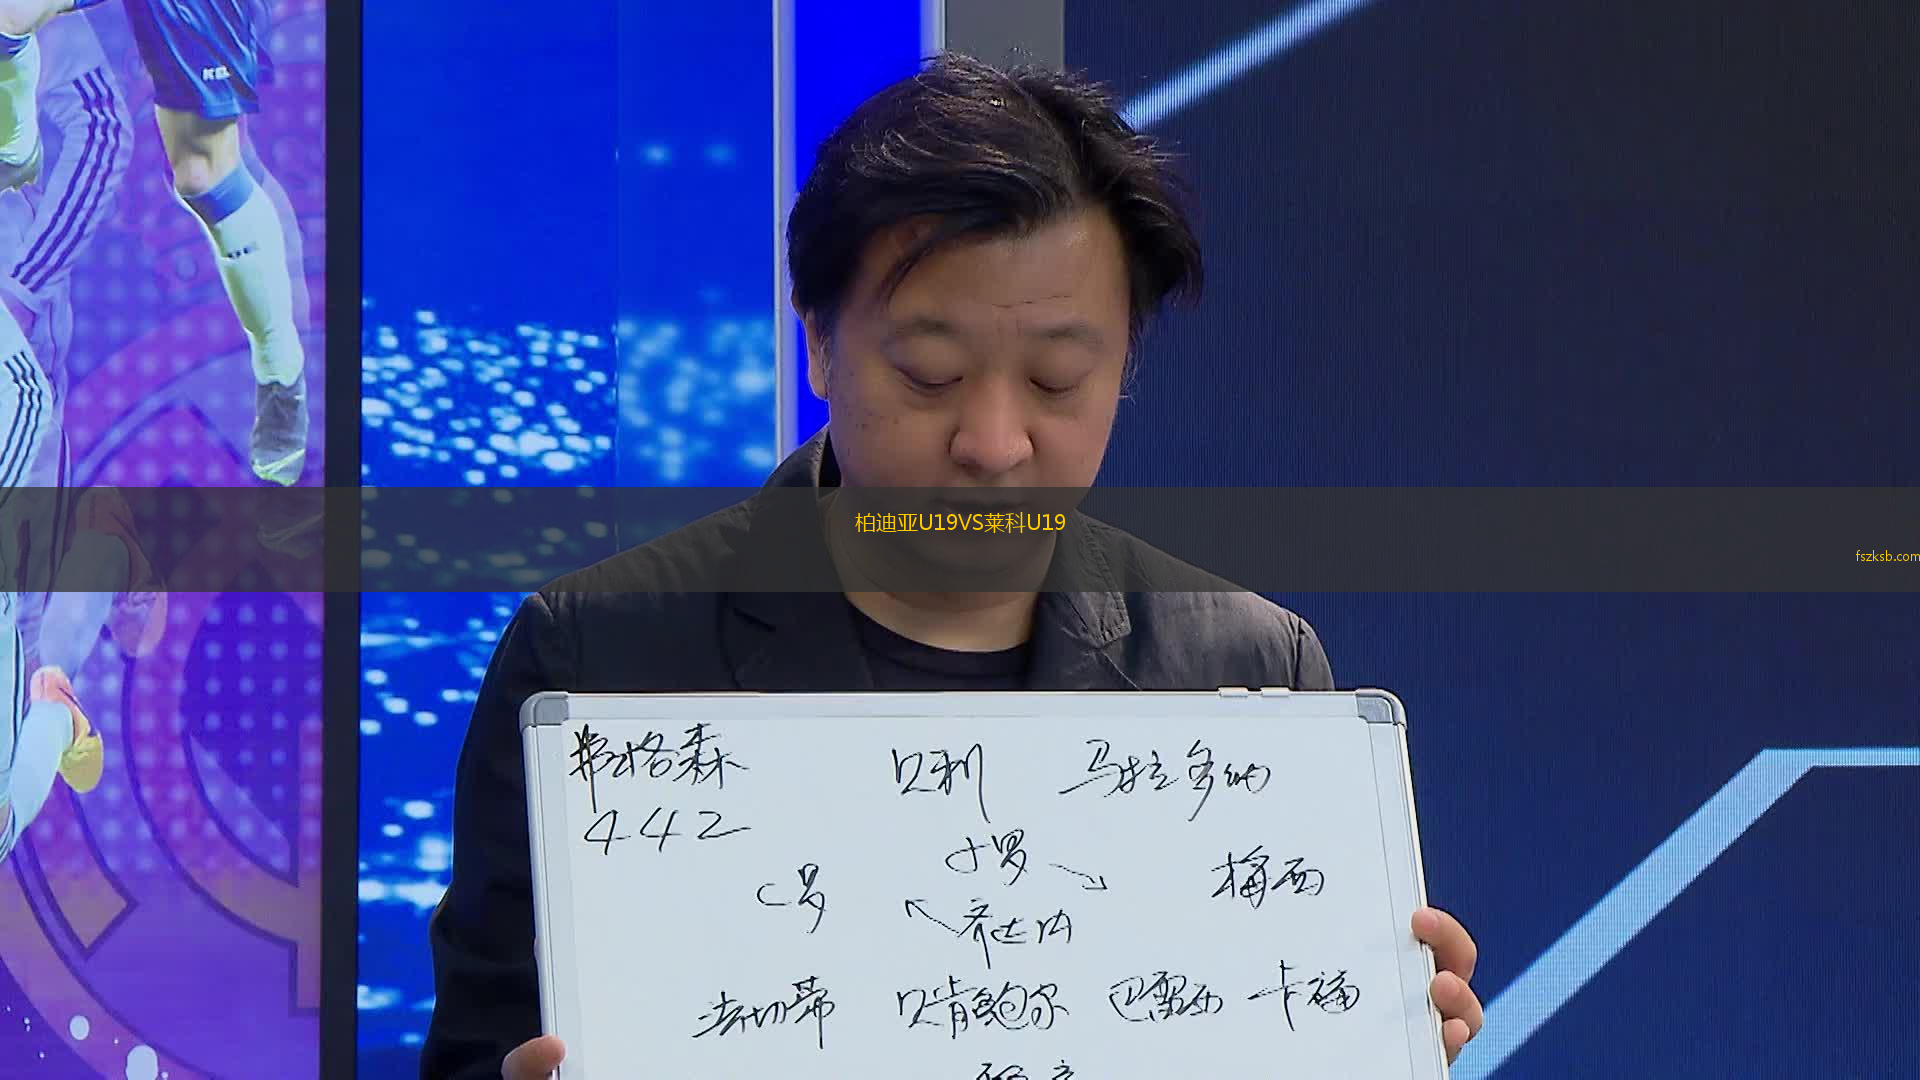 柏迪亚U19VS莱科U19
fszksb.com
弗格森 贝利 马拉多纳
442
小罗
C罗 梅西
齐达内
法切蒂 贝肯鲍尔 巴雷西 卡福